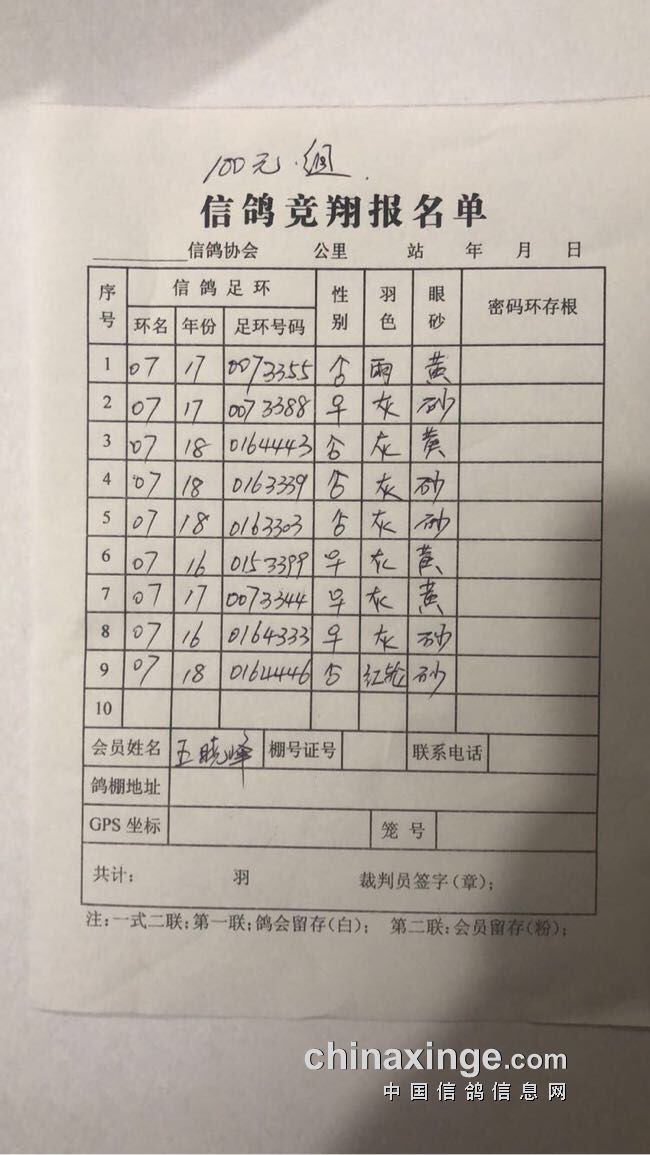 100元组
信鸽竞翔报名单
信鸽协会 公里 站 年 月 日
序号 信鸽足环 性别 羽色 眼砂 密码环存根
环名 年份 足环号码
1 07 17 0073355 雨 黄
2 07 17 0073388 灰 砂
3 07 18 0164443 灰 黄
4 07 18 0163339 灰 砂
5 07 18 0163303 灰 砂
6 07 16 0153399 灰 黄
7 07 17 0073344 灰 黄
8 07 16 0164333 灰 砂
9 07 18 0164446 红轮 砂
10
会员姓名 王晓峰 棚号证号 联系电话
鸽棚地址
GPS 坐标 笼号
共计: 羽 裁判员签字(章);
注:一式二联;第一联;鸽会留存(白); 第二联:会员留存(粉);
chinaxinge.com
中国信鸽信息网